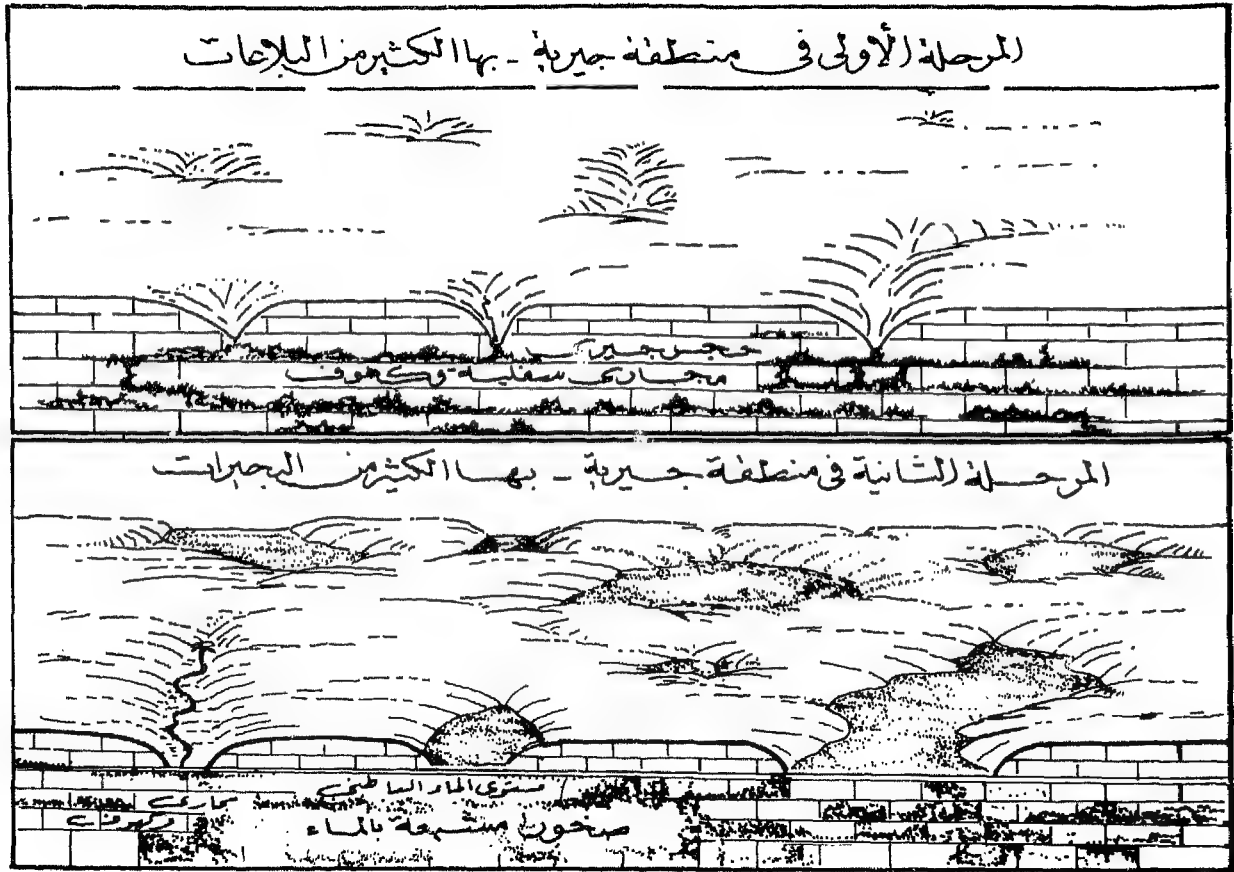 المرحلة الأولى فى منطقة جيرية - بها الكثير من البلاعات
حجر جيرى
مجارى سفلية وكهوف
المرحلة الثانية فى منطقة جيرية - بها الكثير من البحيرات
مستوى الماء الباطنى
مجارى
وكهوف
صخور مشبعة بالماء